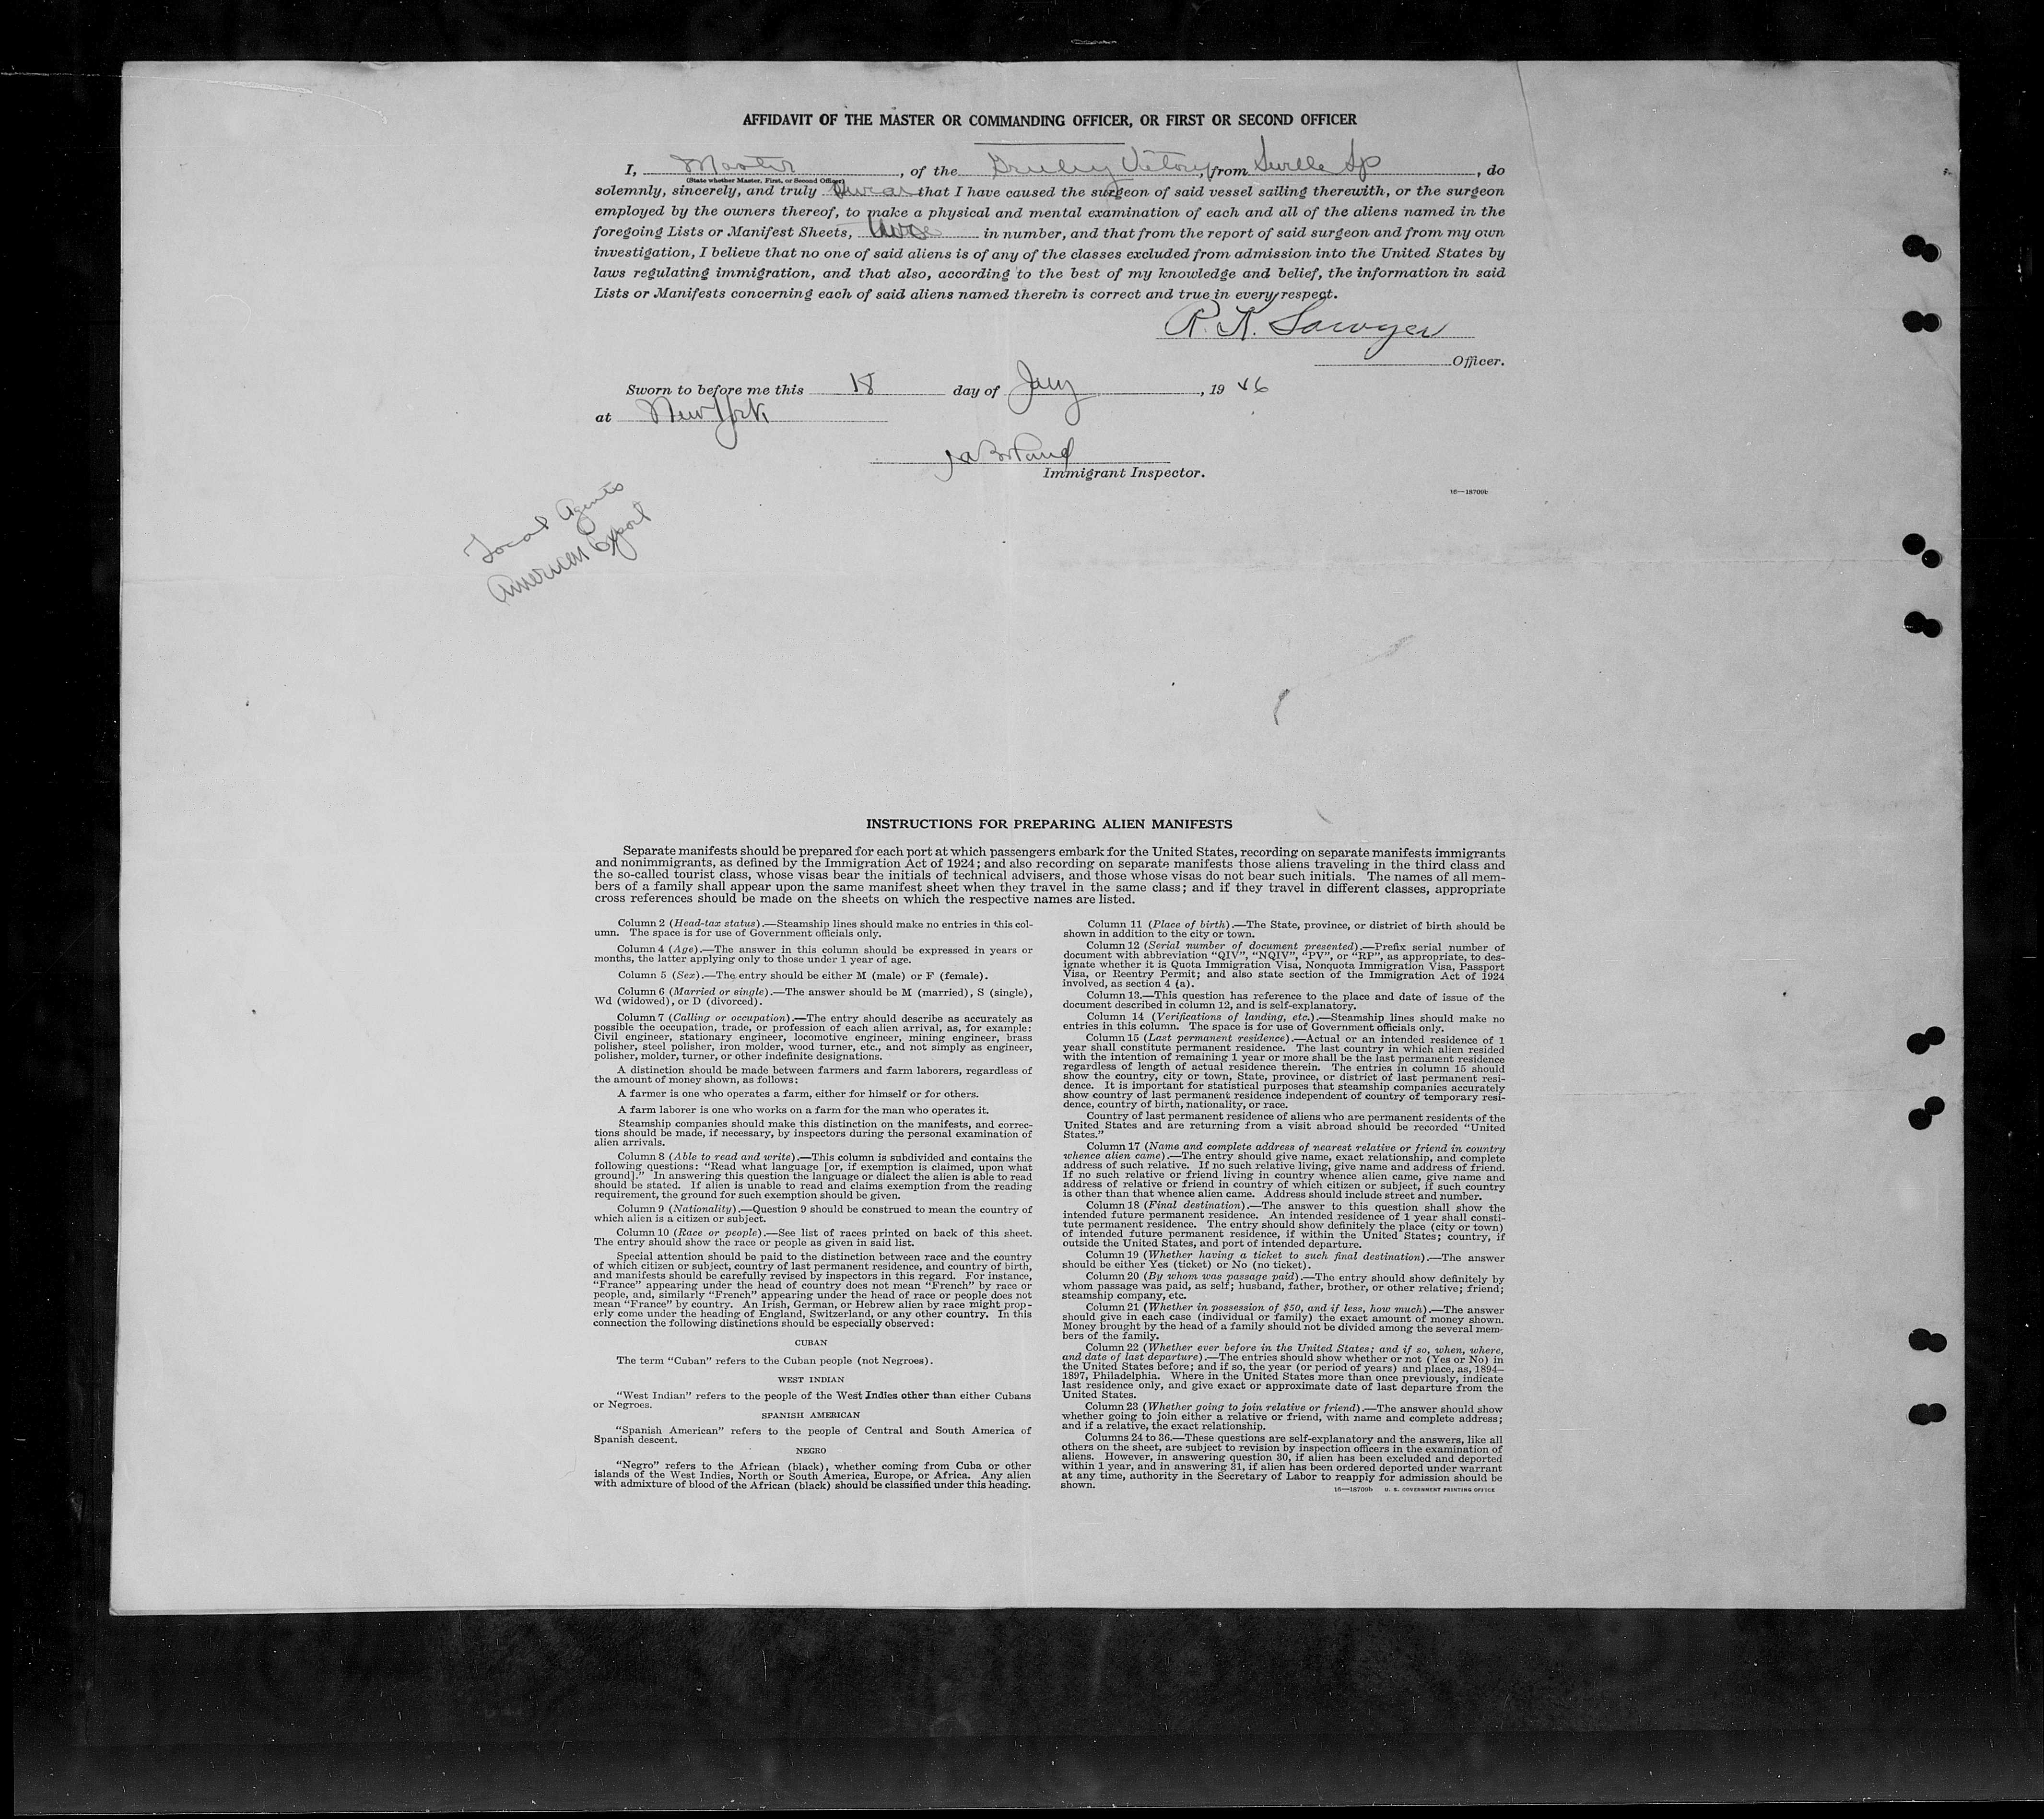 AFFIDAVIT OF THE MASTER OR COMMANDING OFFICER, OR FIRST OR SECOND OFFICER
I, Master, of the Victory, from Seville Sp, do
(State whether Master, First, or Second Officer)
solemnly, sincerely, and truly swear that I have caused the surgeon of said vessel sailing therewith, or the surgeon
employed by the owners thereof, to make a physical and mental examination of each and all of the aliens named in the
foregoing Lists or Manifest Sheets, in number, and that from the report of said surgeon and from my own
investigation, I believe that no one of said aliens is of any of the classes excluded from admission into the United States by
laws regulating immigration, and that also, according to the best of my knowledge and belief, the information in said
Lists or Manifests concerning each of said aliens named therein is correct and true in every respect.
R. K. Sawyer
Officer.
Sworn to before me this 18 day of Jany, 1946
at New York
Immigrant Inspector.
16—18709b
Local Agents
American Export
INSTRUCTIONS FOR PREPARING ALIEN MANIFESTS
Separate manifests should be prepared for each port at which passengers embark for the United States, recording on separate manifests immigrants
and nonimmigrants, as defined by the Immigration Act of 1924; and also recording on separate manifests those aliens traveling in the third class and
the so-called tourist class, whose visas bear the initials of technical advisers, and those whose visas do not bear such initials. The names of all mem-
bers of a family shall appear upon the same manifest sheet when they travel in the same class; and if they travel in different classes, appropriate
cross references should be made on the sheets on which the respective names are listed.
Column 2 (Head-tax status).—Steamship lines should make no entries in this col-
umn. The space is for use of Government officials only.
Column 4 (Age).—The answer in this column should be expressed in years or
months, the latter applying only to those under 1 year of age.
Column 5 (Sex).—The entry should be either M (male) or F (female).
Column 6 (Married or single).—The answer should be M (married), S (single),
Wd (widowed), or D (divorced).
Column 7 (Calling or occupation).—The entry should describe as accurately as
possible the occupation, trade, or profession of each alien arrival, as, for example:
Civil engineer, stationary engineer, locomotive engineer, mining engineer, brass
polisher, steel polisher, iron molder, wood turner, etc., and not simply as engineer,
polisher, molder, turner, or other indefinite designations.
A distinction should be made between farmers and farm laborers, regardless of
the amount of money shown, as follows:
A farmer is one who operates a farm, either for himself or for others.
A farm laborer is one who works on a farm for the man who operates it.
Steamship companies should make this distinction on the manifests, and correc-
tions should be made, if necessary, by inspectors during the personal examination of
alien arrivals.
Column 8 (Able to read and write).—This column is subdivided and contains the
following questions: "Read what language [or, if exemption is claimed, upon what
ground]." In answering this question the language or dialect the alien is able to read
should be stated. If alien is unable to read and claims exemption from the reading
requirement, the ground for such exemption should be given.
Column 9 (Nationality).—Question 9 should be construed to mean the country of
which alien is a citizen or subject.
Column 10 (Race or people).—See list of races printed on back of this sheet.
The entry should show the race or people as given in said list.
Special attention should be paid to the distinction between race and the country
of which citizen or subject, country of last permanent residence, and country of birth,
and manifests should be carefully revised by inspectors in this regard. For instance,
"France" appearing under the head of country does not mean "French" by race or
people, and, similarly "French" appearing under the head of race or people does not
mean "France" by country. An Irish, German, or Hebrew alien by race might prop-
erly come under the heading of England, Switzerland, or any other country. In this
connection the following distinctions should be especially observed:
CUBAN
The term "Cuban" refers to the Cuban people (not Negroes).
WEST INDIAN
"West Indian" refers to the people of the West Indies other than either Cubans
or Negroes.
SPANISH AMERICAN
"Spanish American" refers to the people of Central and South America of
Spanish descent.
NEGRO
"Negro" refers to the African (black), whether coming from Cuba or other
islands of the West Indies, North or South America, Europe, or Africa. Any alien
with admixture of blood of the African (black) should be classified under this heading.
Column 11 (Place of birth).—The State, province, or district of birth should be
shown in addition to the city or town.
Column 12 (Serial number of document presented).—Prefix serial number of
document with abbreviation "QIV", "NQIV", "PV", or "RP", as appropriate, to des-
ignate whether it is Quota Immigration Visa, Nonquota Immigration Visa, Passport
Visa, or Reentry Permit; and also state section of the Immigration Act of 1924
involved, as section 4 (a).
Column 13.—This question has reference to the place and date of issue of the
document described in column 12, and is self-explanatory.
Column 14 (Verifications of landing, etc.).—Steamship lines should make no
entries in this column. The space is for use of Government officials only.
Column 15 (Last permanent residence).—Actual or an intended residence of 1
year shall constitute permanent residence. The last country in which alien resided
with the intention of remaining 1 year or more shall be the last permanent residence
regardless of length of actual residence therein. The entries in column 15 should
show the country, city or town, State, province, or district of last permanent resi-
dence. It is important for statistical purposes that steamship companies accurately
show country of last permanent residence independent of country of temporary resi-
dence, country of birth, nationality, or race.
Country of last permanent residence of aliens who are permanent residents of the
United States and are returning from a visit abroad should be recorded "United
States."
Column 17 (Name and complete address of nearest relative or friend in country
whence alien came).—The entry should give name, exact relationship, and complete
address of such relative. If no such relative living, give name and address of friend.
If no such relative or friend living in country whence alien came, give name and
address of relative or friend in country of which citizen or subject, if such country
is other than that whence alien came. Address should include street and number.
Column 18 (Final destination).—The answer to this question shall show the
intended future permanent residence. An intended residence of 1 year shall consti-
tute permanent residence. The entry should show definitely the place (city or town)
of intended future permanent residence, if within the United States; country, if
outside the United States, and port of intended departure.
Column 19 (Whether having a ticket to such final destination).—The answer
should be either Yes (ticket) or No (no ticket).
Column 20 (By whom was passage paid).—The entry should show definitely by
whom passage was paid, as self; husband, father, brother, or other relative; friend;
steamship company, etc.
Column 21 (Whether in possession of $50, and if less, how much).—The answer
should give in each case (individual or family) the exact amount of money shown.
Money brought by the head of a family should not be divided among the several mem-
bers of the family.
Column 22 (Whether ever before in the United States; and if so, when, where,
and date of last departure).—The entries should show whether or not (Yes or No) in
the United States before; and if so, the year (or period of years) and place, as, 1894–
1897, Philadelphia. Where in the United States more than once previously, indicate
last residence only, and give exact or approximate date of last departure from the
United States.
Column 23 (Whether going to join relative or friend).—The answer should show
whether going to join either a relative or friend, with name and complete address;
and if a relative, the exact relationship.
Columns 24 to 36.—These questions are self-explanatory and the answers, like all
others on the sheet, are subject to revision by inspection officers in the examination of
aliens. However, in answering question 30, if alien has been excluded and deported
within 1 year, and in answering 31, if alien has been ordered deported under warrant
at any time, authority in the Secretary of Labor to reapply for admission should be
shown.
16—18709b U. S. GOVERNMENT PRINTING OFFICE